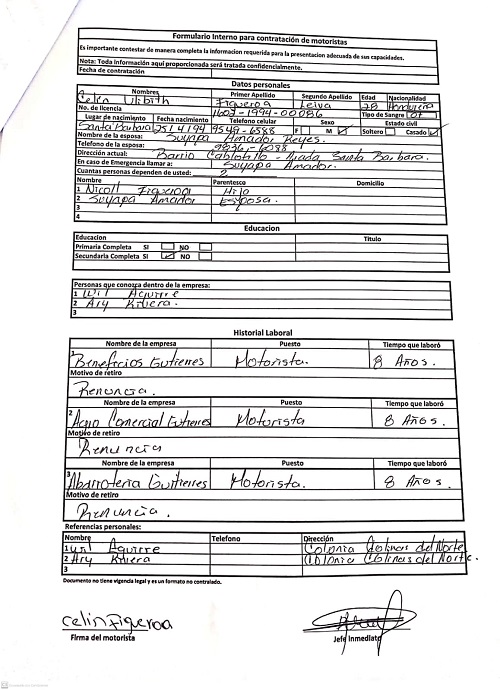 Formulario Interno para contratación de motoristas
Es importante contestar de manera completa la informacion requerida para la presentacion adecuada de sus capacidades.
Nota: Toda Información aquí proporcionada será tratada confidencialmente.
Fecha de contratación
Datos personales
Nombres Primer Apellido Segundo Apellido Edad Nacionalidad
Celin Figueroa Leiva 28 Hondureña
No. de licencia 1607-1994-00086 Tipo de Sangre O+
Lugar de nacimiento Fecha nacimiento Telefono celular Sexo Estado civil
Santa Barbara 25/4/94 9549-6588 F M Soltero Casado
Nombre de la esposa: Suyapa Amador Reyes.
Telefono de la esposa: 9836-6088
Dirección actual: Barrio Ilada Santa Barbara.
En caso de Emergencia llamar a: Suyapa Amador.
Cuantas personas dependen de usted: 2
Nombre Parentesco Domicilio
1 Nicoll Figueroa Hijo
2 Suyapa Amador Esposa.
3
4
Educacion
Educacion Titulo
Primaria Completa SI NO
Secundaria Completa SI NO
Personas que conozca dentro de la empresa:
1 Aguirre
2 Ary Rivera.
3
Historial Laboral
Nombre de la empresa Puesto Tiempo que laboró
1 Beneficios Gutierres Motorista. 8 Años.
Motivo de retiro
Renuncia.
Nombre de la empresa Puesto Tiempo que laboró
2 Agro Comercial Gutierres Motorista 8 Años.
Motivo de retiro
Renuncia
Nombre de la empresa Puesto Tiempo que laboró
3 Abarroteria Gutierres Motorista. 8 Años.
Motivo de retiro
Renuncia.
Referencias personales:
Nombre Telefono Dirección
1 Aguirre Colonia Colinas del Norte
2 Ary Rivera Colonia Colinas del Norte.
3
Documento no tiene vigencia legal y es un formato no contralado.
Celin Figueroa
Firma del motorista Jefe Inmediato